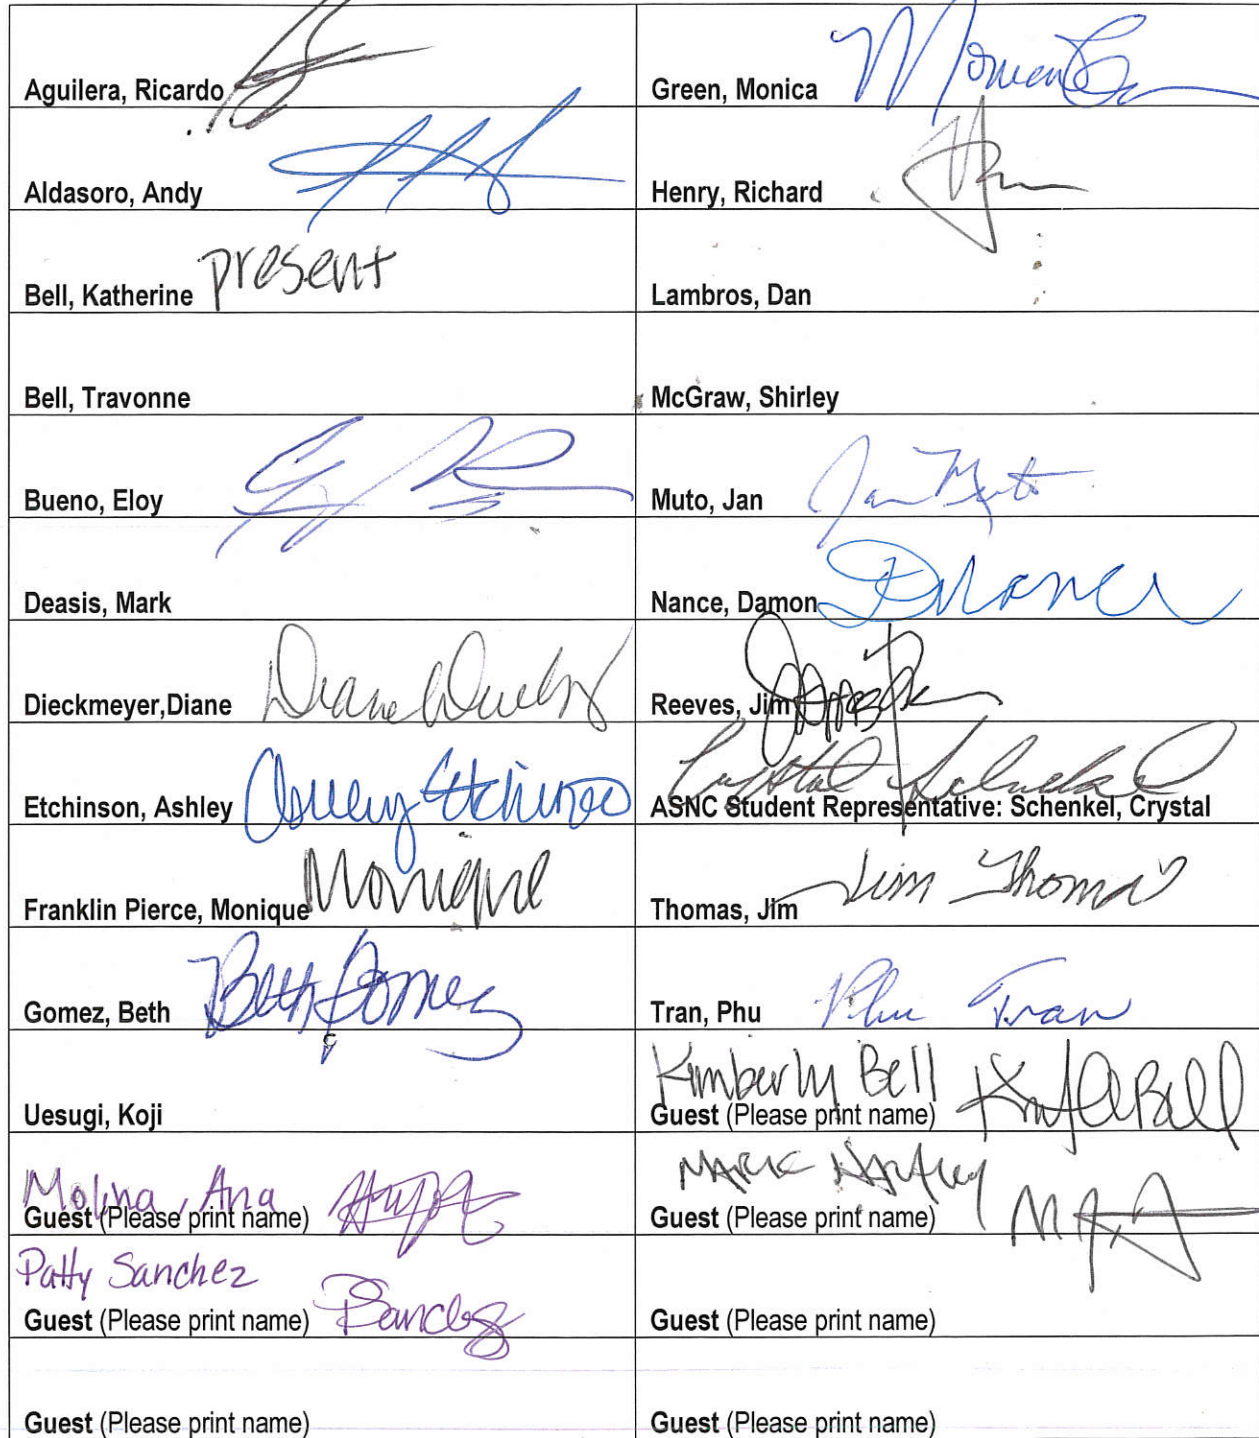 Aguilera, Ricardo
Green, Monica
Aldasoro, Andy
Henry, Richard
Bell, Katherine present
Lambros, Dan
Bell, Travonne
McGraw, Shirley
Bueno, Eloy
Muto, Jan Jan Muto
Deasis, Mark
Nance, Damon DNance
Dieckmeyer,Diane Diane
Reeves, Jim
Etchinson, Ashley Ashley Etchinson
Crystal Schenkel
ASNC Student Representative: Schenkel, Crystal
Franklin Pierce, Monique Monique
Thomas, Jim Jim Thomas
Gomez, Beth Beth Gomez
Tran, Phu Phu Tran
Uesugi, Koji
Kimberly Bell
Guest (Please print name)
Molina, Ana
Guest (Please print name)
MARK HARTLEY
Guest (Please print name)
Patty Sanchez
Guest (Please print name) PSanchez
Guest (Please print name)
Guest (Please print name)
Guest (Please print name)